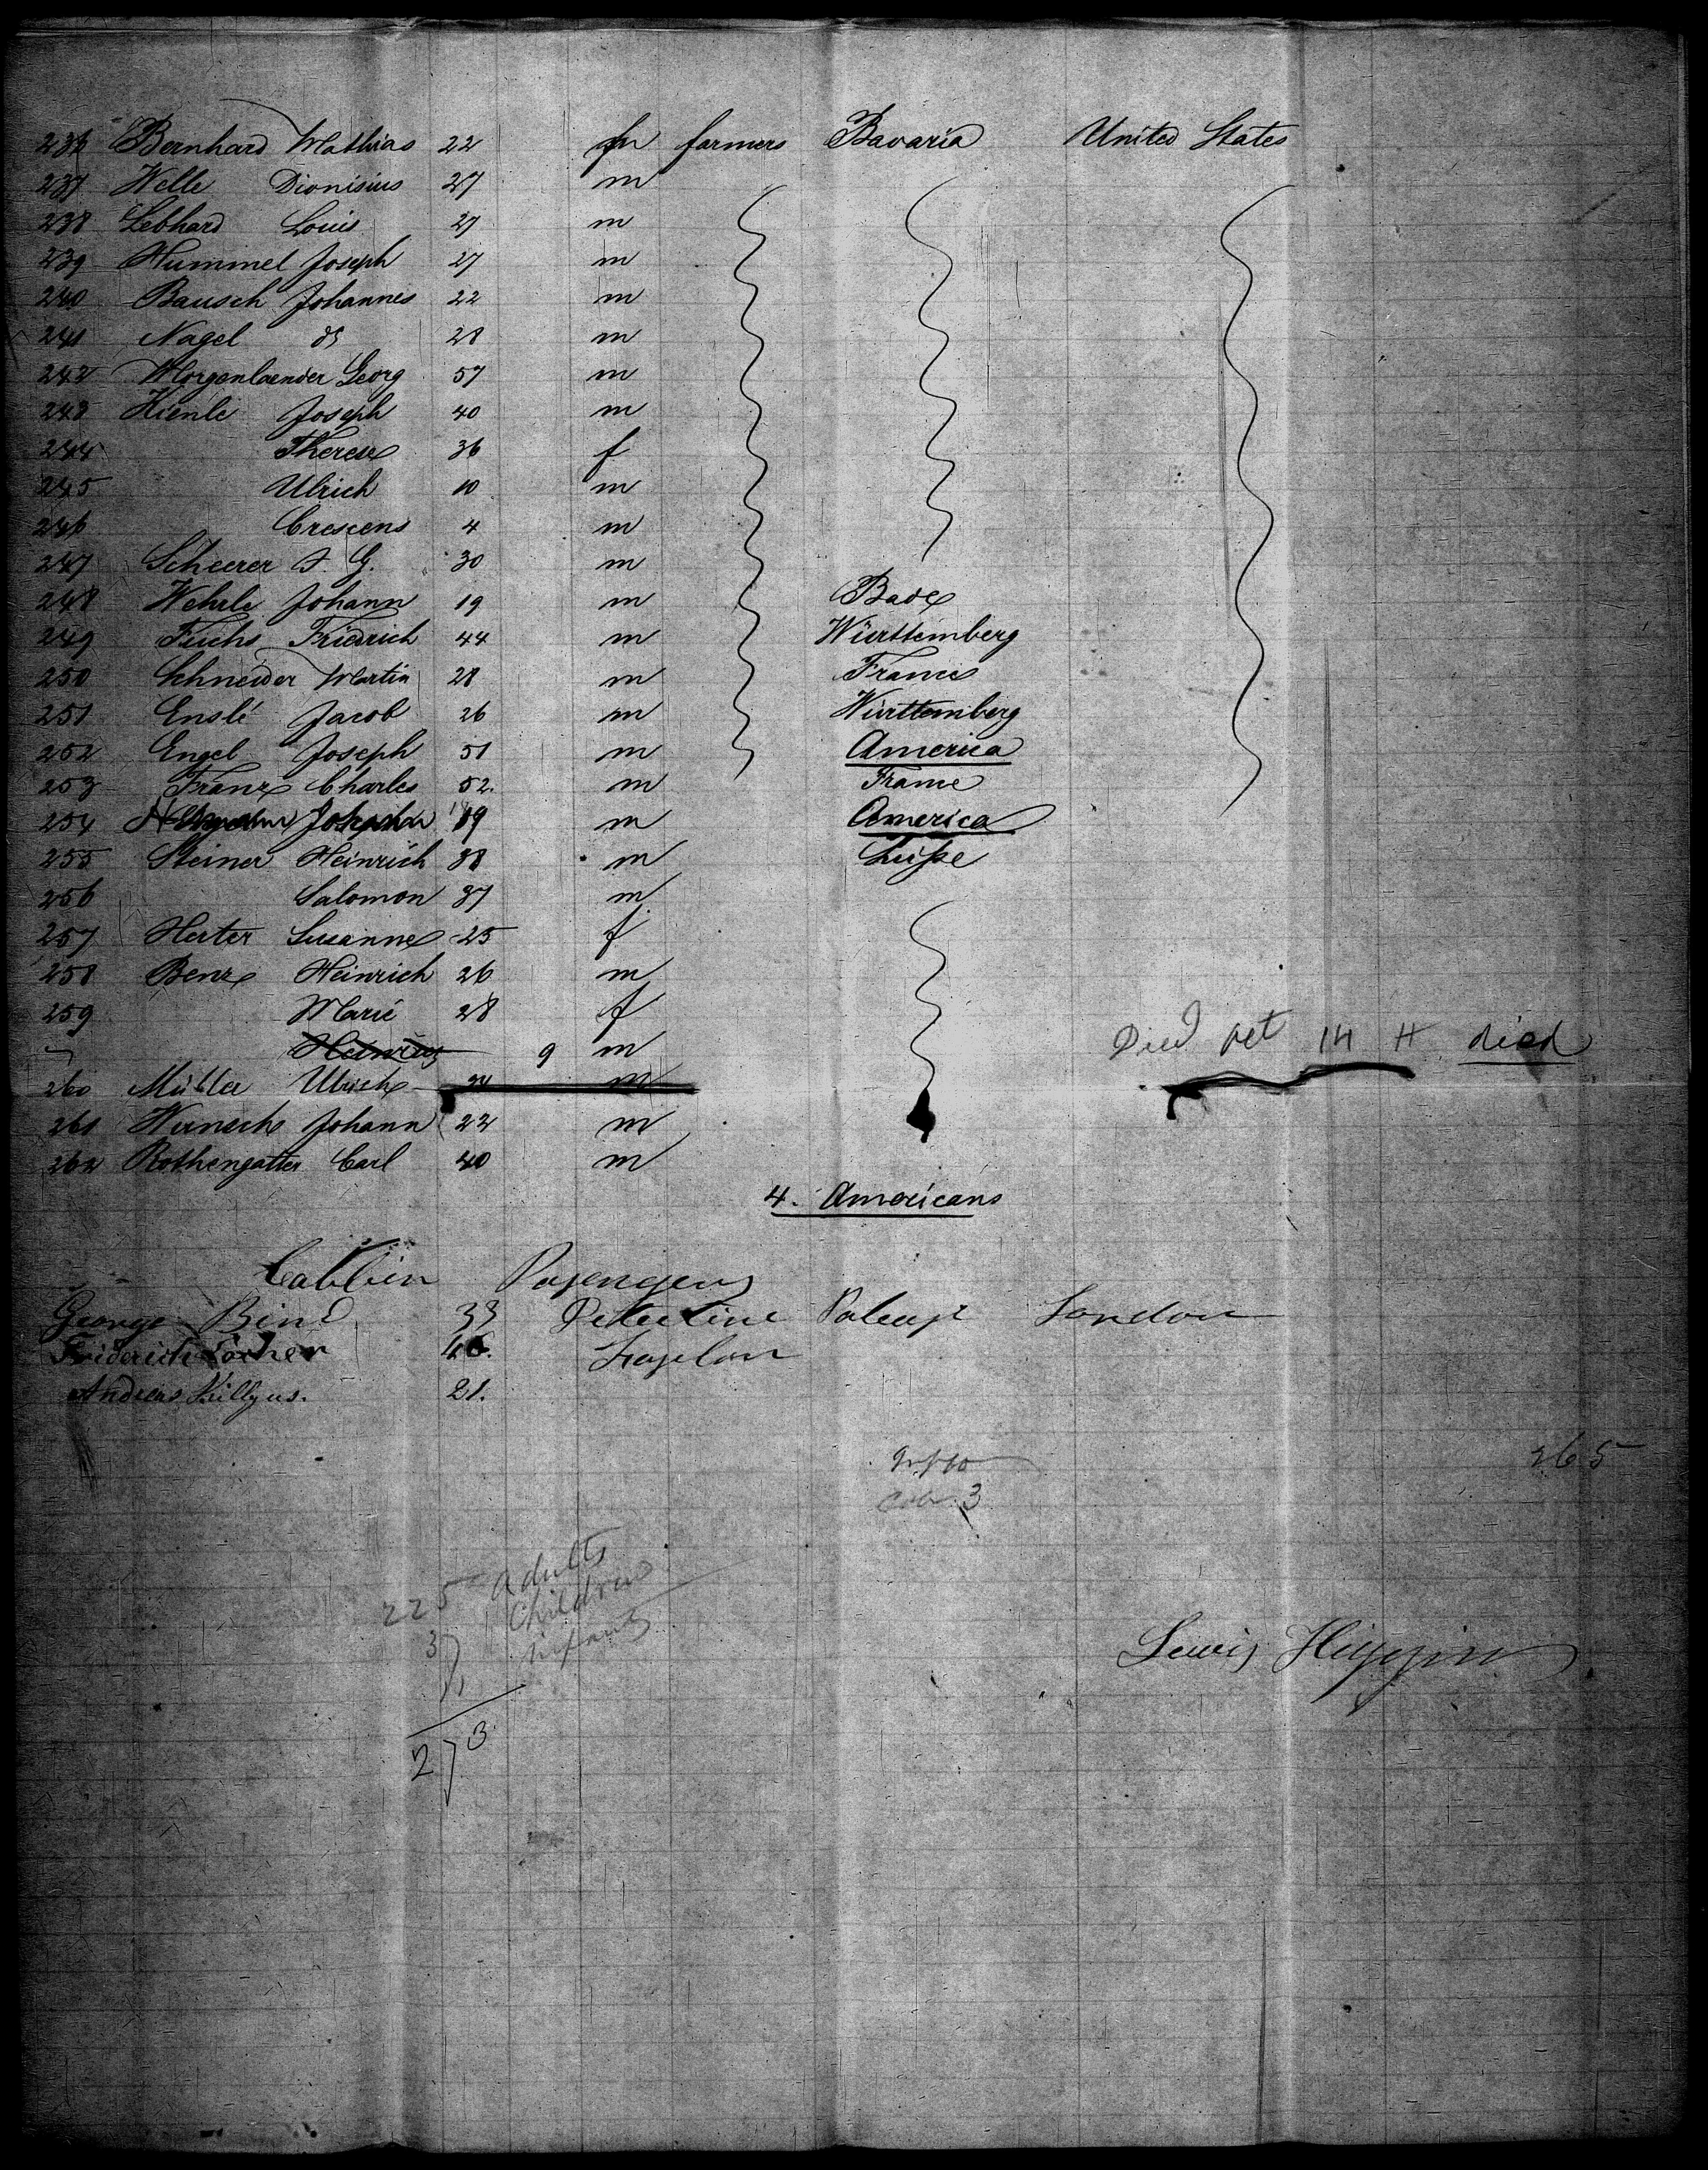 236 Bernhard Mathias 22 m farmers Bavaria United States
237 Welle Dionisius 27 m
238 Lebhard Louis 27 m
239 Hummel Joseph 27 m
240 Bausch Johannes 22 m
241 Nagel do 28 m
242 Morgenlaender Georg 57 m
243 Kienle Joseph 40 m
244 Therese 36 f
245 Ulrich 10 m
246 Crescens 4 m
247 Scheerer J. G. 30 m
248 Wehrle Johann 19 m Bade
249 Fuchs Friedrich 44 m Württemberg
250 Schneider Martin 28 m France
251 Enslé Jacob 26 m Württemberg
252 Engel Joseph 51 m America
253 Franz Charles 52. m France
254 19 m America
255 Steiner Heinrich 38 m Suisse
256 Salomon 37 m
257 Herter Susanne 25 f
258 Benz Heinrich 26 m
259 Marie 28 f
Heinrich 9 m Died Oct 14 H died
260 Müller Ulrich m
261 Wunsch Johann 22 m
262 Rothengatter Carl 40 m
4. Americans
Cabbin Passengers
George Bind 33 London
Friderich 46.
Andreas Killyus. 21.
265
Cab. 3
225 Adults
37 Children
11 infants
273
Lewis Higgins